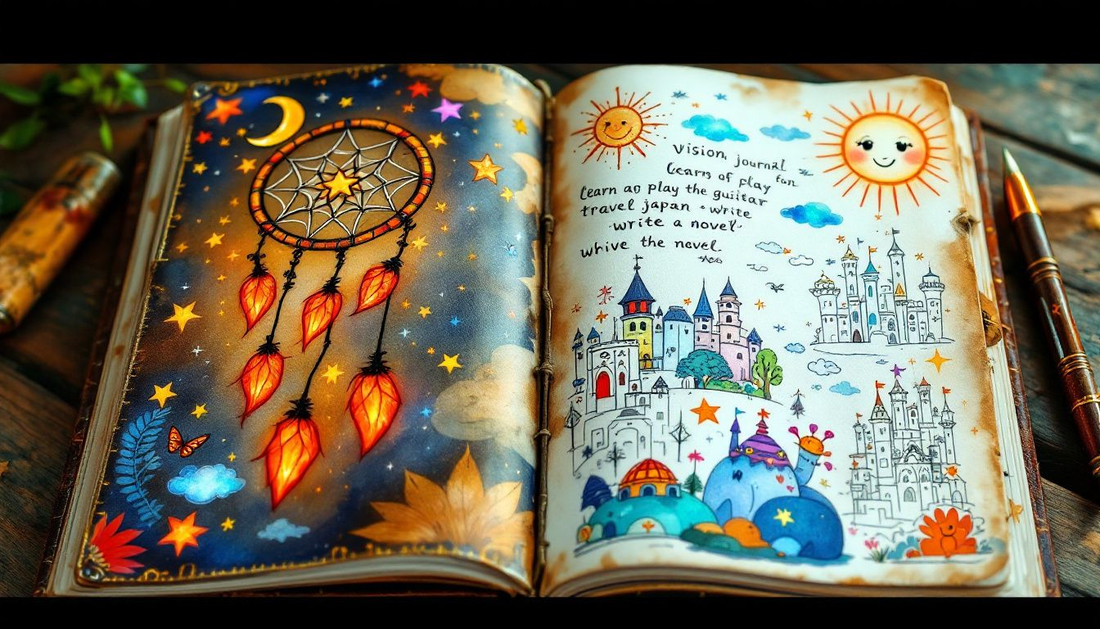 Vision, journal
Learns of play fun
Learn ao play the guiitar
travel japan • write
write a novel
whive the nevel.